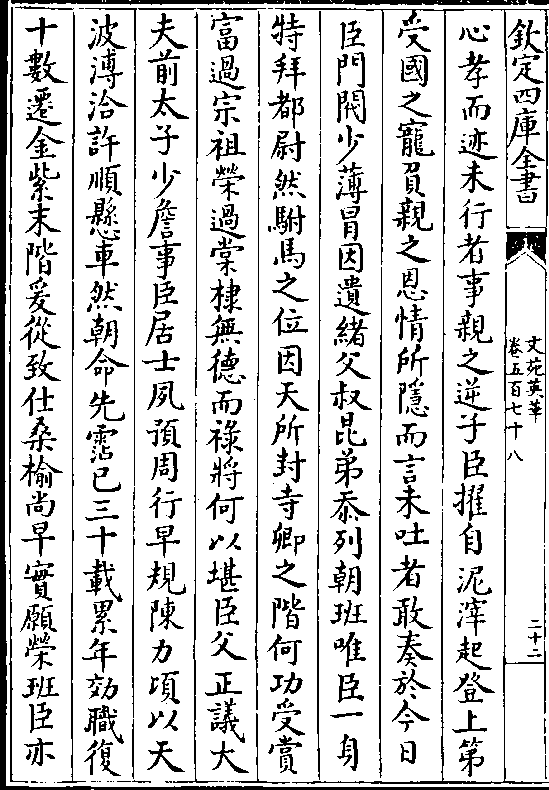 欽定四庫全書
文苑英華
卷五百七十八
二十二
心孝而迹未行者事親之逆子臣擢自泥滓起登上第
受國之寵負親之恩情所隱而言未吐者敢奏於今日
臣門閥少薄冒因遺緒父叔昆弟忝列朝班唯臣一身
特拜都尉然駙馬之位因天所封寺卿之階何功受賞
富過宗祖榮過棠棣無德而祿將何以堪臣父正議大
夫前太子少詹事臣居士夙預周行早規陳力頃以天
波溥洽許順懸車然朝命先霑已三十載累年効職復
十數遷金紫末階爰從致仕桑榆尚早實願榮班臣亦